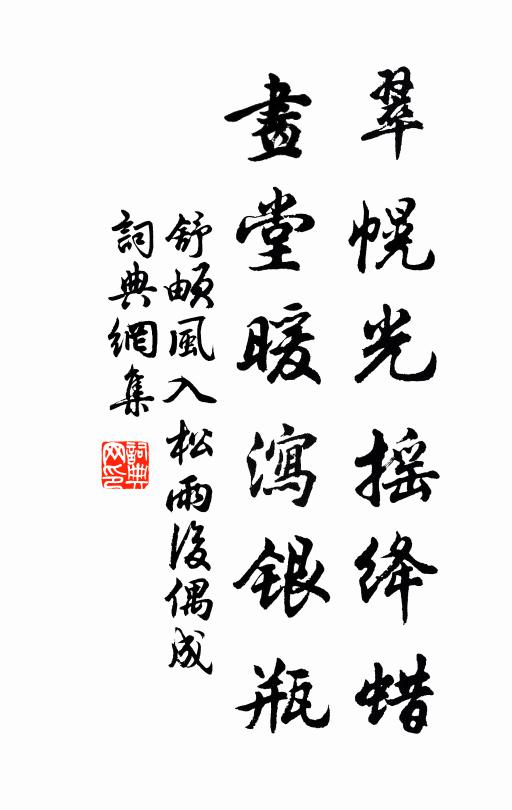 翠幌光摇绛蜡
畫堂暖瀉銀瓶
舒頔風入松雨後偶成
詞典網集
詞典网印